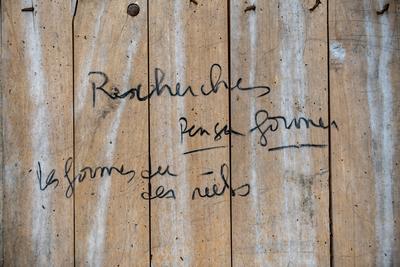 Recherches
Penser former
les formes ou
des réels